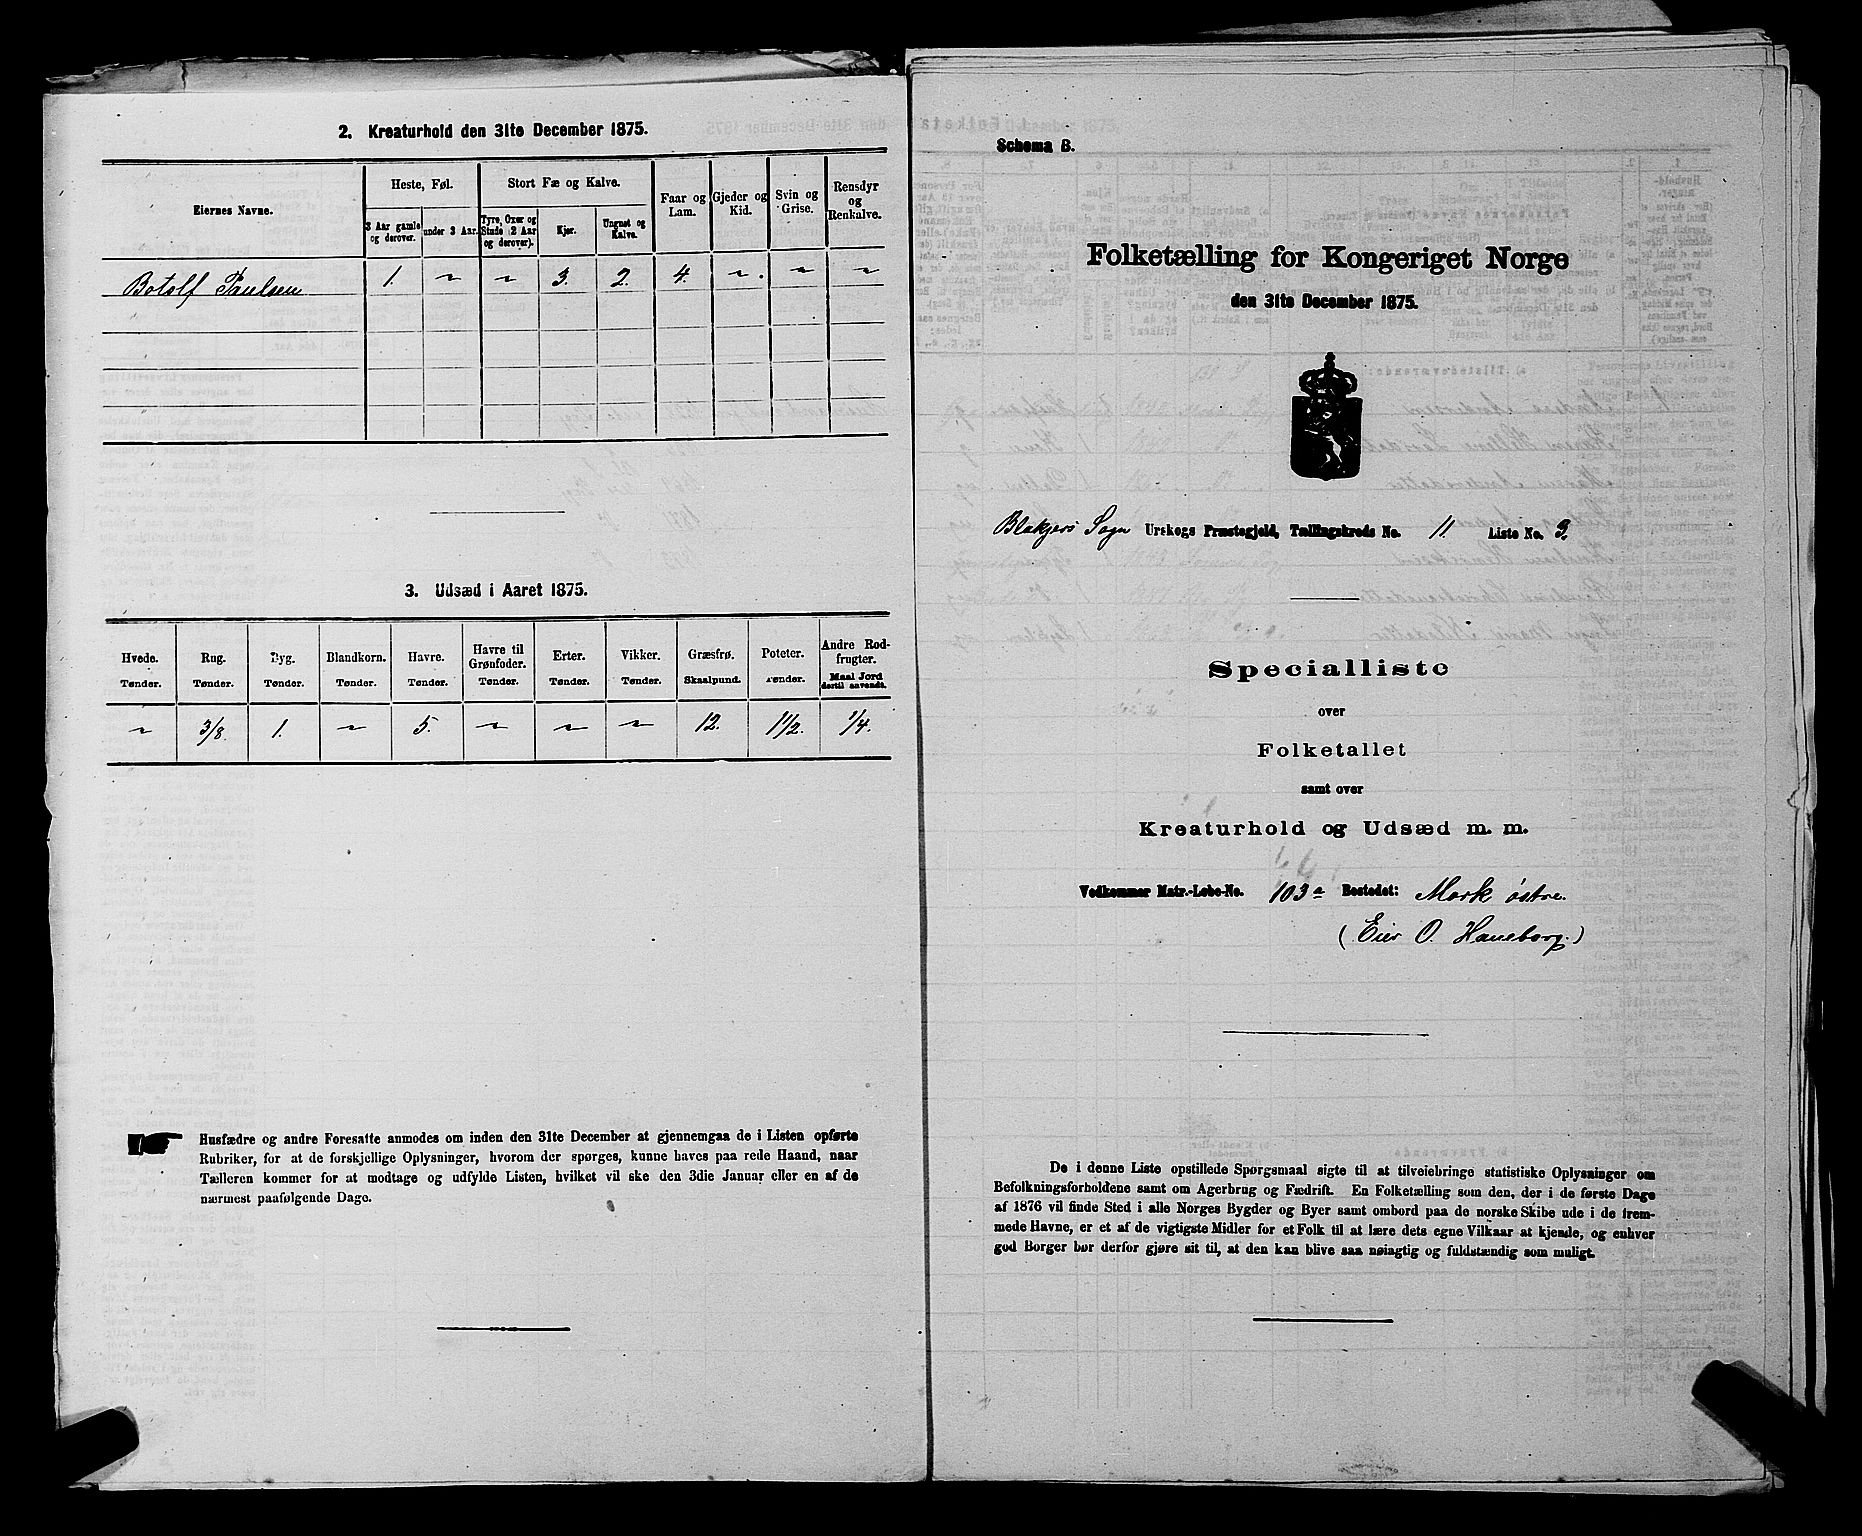 2. Kreaturhold den 31te December 1875.
Eiernes Navne.
Heste, Føl.
3 Aar gamle og derover.
under 3 Aar.
Stort Fæ og Kalve.
Tyre, Oxer og Stude (2 Aar og derover).
Kjør.
Ungnøt og Kalve.
Faar og Lam.
Gjeder og Kid.
Svin og Grise.
Rensdyr og Renkalve.
Botolf Paulsen 1. " " 3. 2. 4. " " "
3. Udsæd i Aaret 1875.
Hvede. Tønder.
Rug. Tønder.
Byg. Tønder.
Blandkorn. Tønder.
Havre. Tønder.
Havre til Grønfoder. Tønder.
Erter. Tønder.
Vikker. Tønder.
Græsfrø. Skaalpund.
Poteter. Tønder.
Andre Rodfrugter. Maal Jord dertil anvendt.
" 3/8. 1. " 5. " " " 12. 1 1/2. 1/4.
Husfædre og andre Foresatte anmodes om inden den 31te December at gjennemgaa de i Listen opførte
Rubriker, for at de forskjellige Oplysninger, hvorom der spørges, kunne haves paa rede Haand, naar
Tælleren kommer for at modtage og udfylde Listen, hvilket vil ske den 3die Januar eller en af de
nærmest paafølgende Dage.
Schema B.
Folketælling for Kongeriget Norge
den 31te December 1875.
Blakjers Sogn Urskogs Præstegjeld, Tællingskreds No. 11. Liste No. 3.
Specialliste
over
Folketallet
samt over
Kreaturhold og Udsæd m. m.
Vedkommer Matr.-Løbe-No. 103a Bostedet: Mork østre.
(Eier O. Haneborg.)
De i denne Liste opstillede Spørgsmaal sigte til at tilveiebringe statistiske Oplysninger om
Befolkningsforholdene samt om Agerbrug og Fædrift. En Folketælling som den, der i de første Dage
af 1876 vil finde Sted i alle Norges Bygder og Byer samt ombord paa de norske Skibe ude i de frem-
mede Havne, er et af de vigtigste Midler for et Folk til at lære dets egne Vilkaar at kjende, og enhver
god Borger bør derfor gjøre sit til, at den kan blive saa nøiagtig og fuldstændig som muligt.